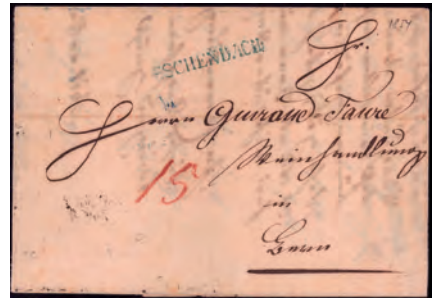 1854
ESCHENBACH
Hr.
Herrn Guiraud-Faure
Weinhandlung
in
Bern
15